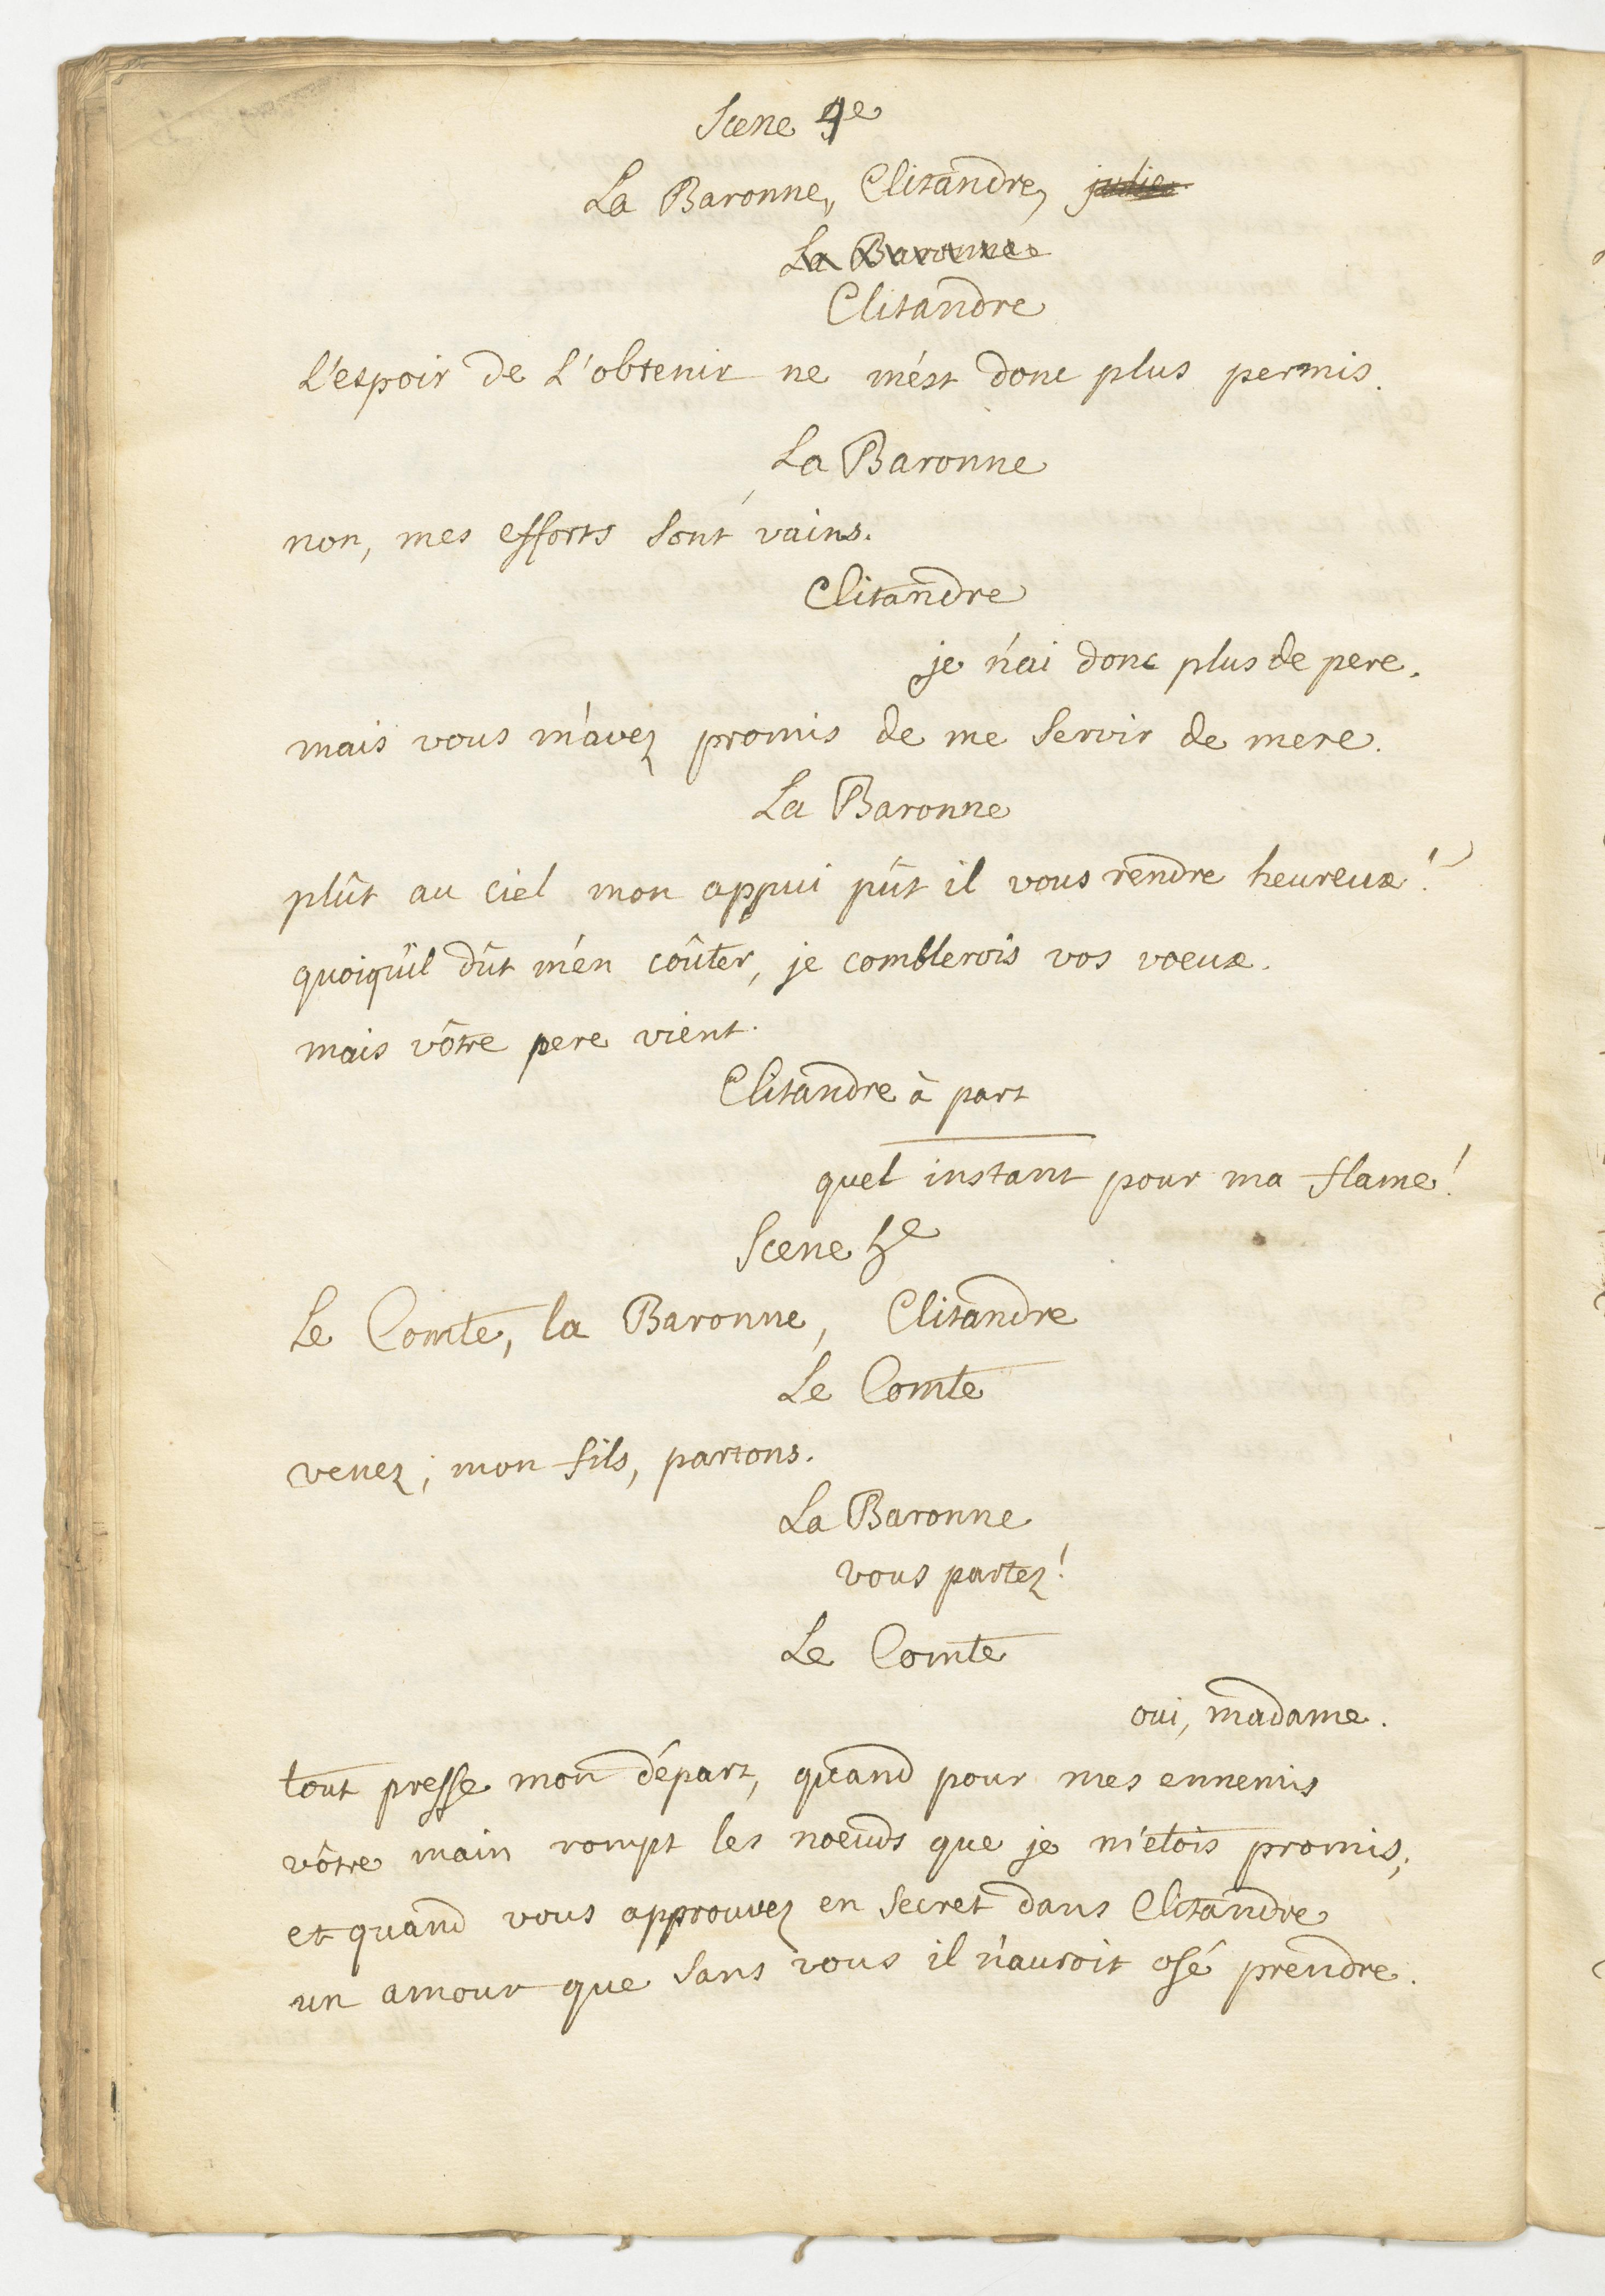 Scene 4e
La Baronne, Clitandre, julie
La Baronne
Clitandre
L'espoir de L'obtenir ne m'ést donc plus permis.
La Baronne
non, mes efforts sont vains.
Clitandre
je n'ai donc plus de pere.
mais vous m'avez promis de me servir de mere.
La Baronne
plût au ciel mon appui pût il vous rendre heureux!
quoiqu'il dût m'en coûter, je comblerois vos voeux.
mais vôtre pere vient.
Clitandre à part
quel instant pour ma flame!
Scene 5e
Le Comte, la Baronne, Clitandre
Le Comte
venez, mon fils, partons.
La Baronne
vous partez!
Le Comte
oui, madame.
tout presse mon départ, quand pour mes ennemis
vôtre main rompt les noeuds que je m'etois promis;
et quand vous approuvez en secret dans Clitandre
un amour que sans vous il n'auroit osé prendre.